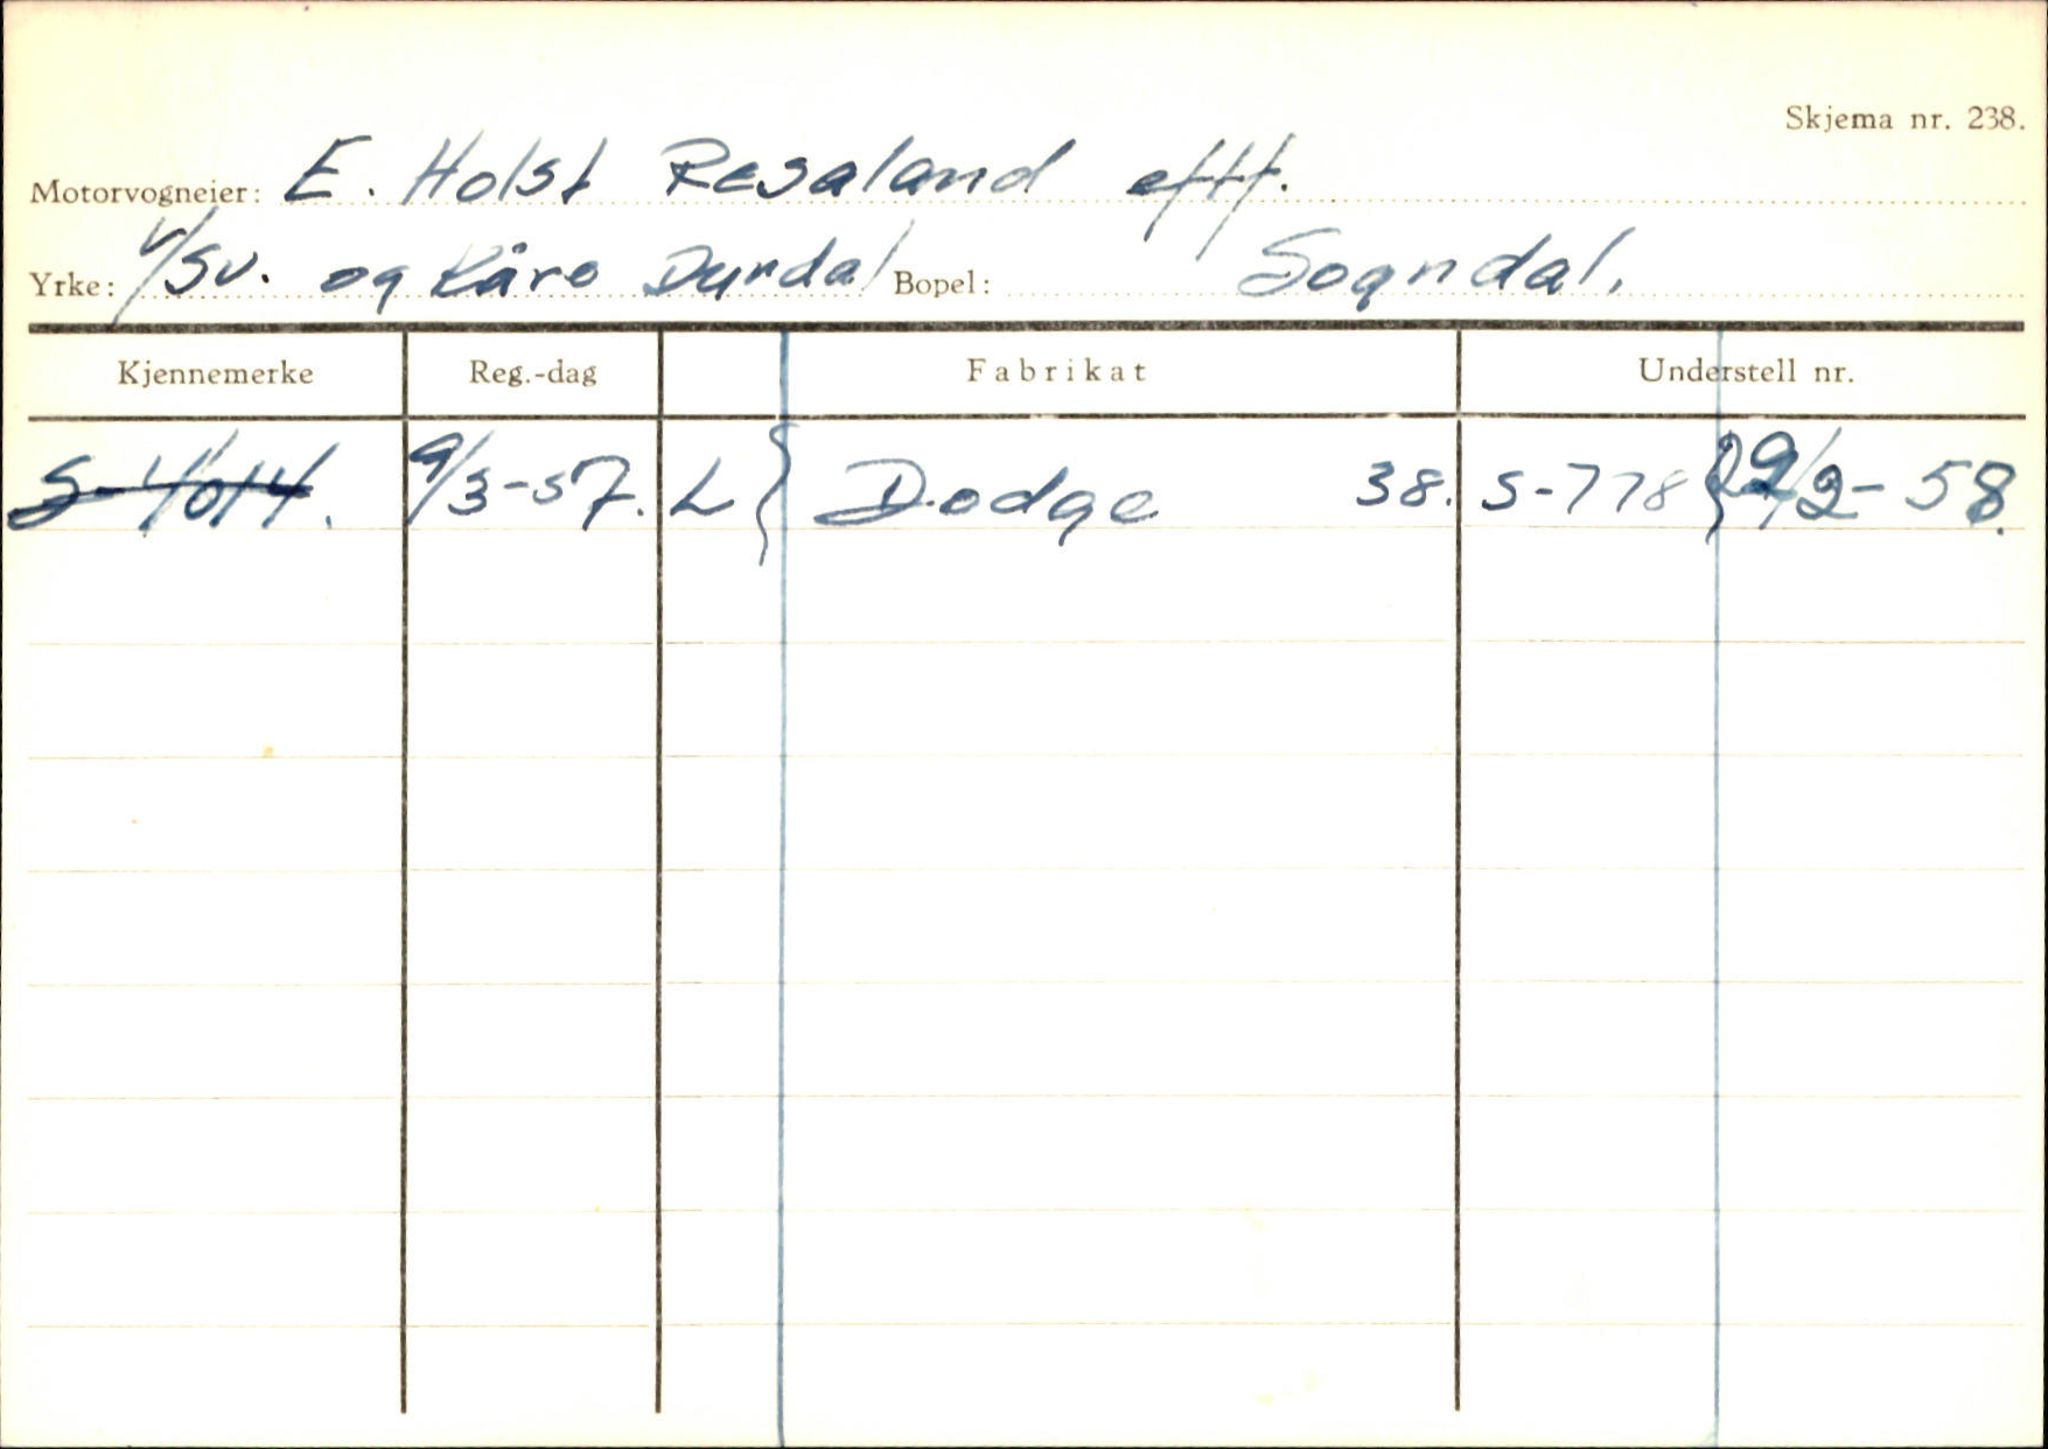 Skjema nr. 238.
Motorvogneier: E. Holst Resaland eftf.
Yrke: v/Sv. og Kåre Dyrdal Bopel: Sogndal.
Kjennemerke Reg.-dag Fabrikat Understell nr.
S-11014. 9/3-57. L Dodge 38. S-778 29/2-58.